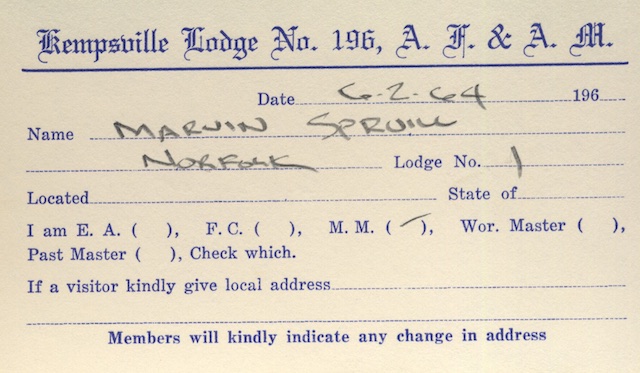 Kempsville Lodge No. 196, A. F. & A. M.
Date 6-2-64 196
Name MARVIN SPRUILL
NORFOLK Lodge No. 1
Located State of
I am E. A. ( ), F. C. ( ), M. M. ( ✓ ), Wor. Master ( ),
Past Master ( ), Check which.
If a visitor kindly give local address
Members will kindly indicate any change in address